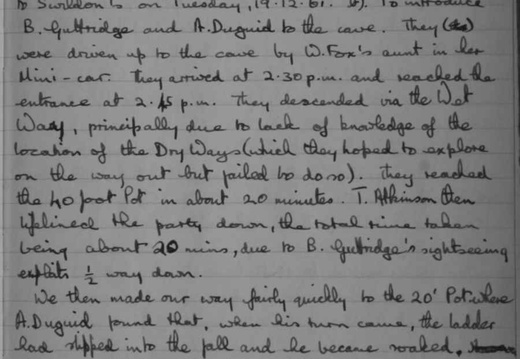 to Swildon's on Tuesday, 19.12.61. To introduce
B. Guttridge and A. Duguid to the cave. They
were driven up to the cave by W. Fox's aunt in her
Mini-car. They arrived at 2.30 p.m. and reached the
entrance at 2.45 p.m. They descended via the Wet
Way, principally due to lack of knowledge of the
location of the Dry Ways (which they hoped to explore
on the way out but failed to do so). They reached
the 40 foot Pot in about 20 minutes. T. Atkinson then
lifelined the party down, the total time taken
being about 20 mins, due to B. Guttridge's sightseeing
exploits ½ way down.
We then made our way fairly quickly to the 20' Pot where
A. Duguid found that, when his turn came, the ladder
had slipped into the fall and he became soaked.